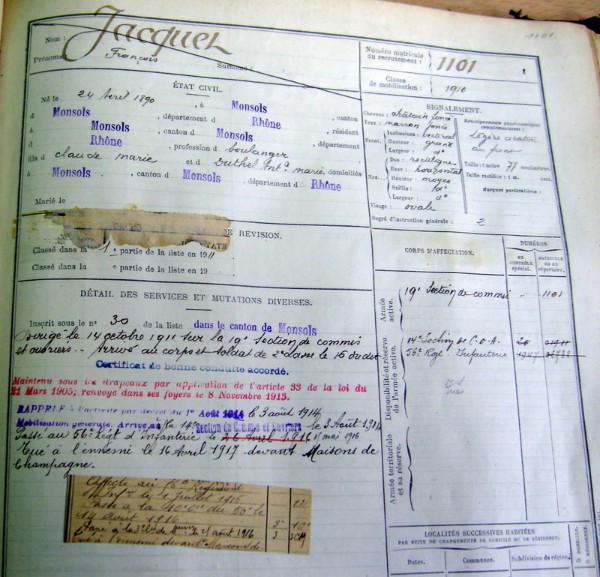 1101
Nom : Jacquet
Prénoms : François Surnoms :
Numéro matricule du recrutement : 1101
Classe de mobilisation : 1910
ÉTAT CIVIL.
Né le 24 Avril 1890, à Monsols, canton
d Monsols, département d Rhône, résidant
à Monsols, canton d Monsols, département
d Rhône, profession d boulanger
fils d Claude Marie et d Duthel Ant.ª Marie, domiciliés
à Monsols, canton d Monsols, département d Rhône
Marié le
DE REVISION.
Classé dans la 1e partie de la liste en 1911
Classé dans la partie de la liste en 19
SIGNALEMENT.
Cheveux : châtain foncé
Yeux : marron foncé
Front Inclinaison : vertical
Hauteur : grand
Largeur : dº
Nez Dos : rectiligne
Base : horizontal
Hauteur : moyen
Saillie : dº
Largeur : dº
Visage : ovale
Renseignements physionomiques complémentaires :
légère cicatrice au front
Taille : 1 mètre 77 centimètres.
Taille rectifiée : 1 m. cent.
Marques particulières :
Degré d'instruction générale : 2
DÉTAIL DES SERVICES ET MUTATIONS DIVERSES.
Inscrit sous le n° 30 de la liste dans le canton de Monsols
Dirigé le 14 octobre 1911 sur la 19e Section de commis
et ouvriers. Arrivé au corps et soldat de 2e classe le 15 dudit
Certificat de bonne conduite accordé.
Maintenu sous les drapeaux par application de l'article 33 de la loi du
21 Mars 1905; renvoyé dans ses foyers le 8 Novembre 1913.
RAPPELÉ à l'activité par décret du 1er Août 1914 le 3 août 1914
Mobilisation générale. Arrivé à la 14e Section de Commis et Ouvriers le 3 Août 1914
Passé au 56e Régt d'infanterie le 16 Avril 1916 1er mai 1916
Tué à l'ennemi le 16 Avril 1917 devant Maisons de
Champagne.
CORPS D'AFFECTATION.
NUMÉROS
au contrôle spécial.
matricule ou au répertoire.
Armée active.
19e Section de commis - 1101
Disponibilité et réserve de l'armée active.
14e Section de C.O.A.
56e Régt Infanterie
Armée territoriale et sa réserve.
LOCALITÉS SUCCESSIVES HABITÉES
PAR SUITE DE CHANGEMENTS DE DOMICILE OU DE RÉSIDENCE.
Dates. Communes. Subdivision de région.